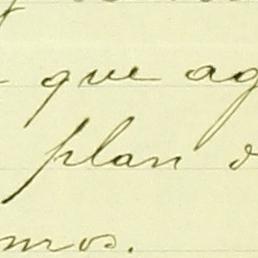 que ag
plan d
mos.